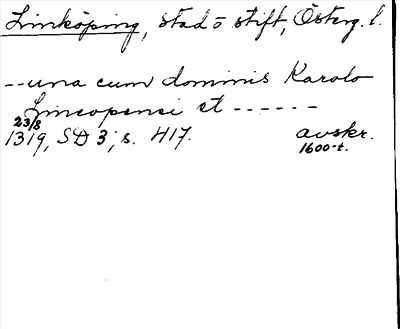 Linköping, stad o stift, Österg. l.
-- una cum dominis Karolo
Lincopensi et ------
23/8
1319, SD 3, s. 417. avskr.
1600-t.